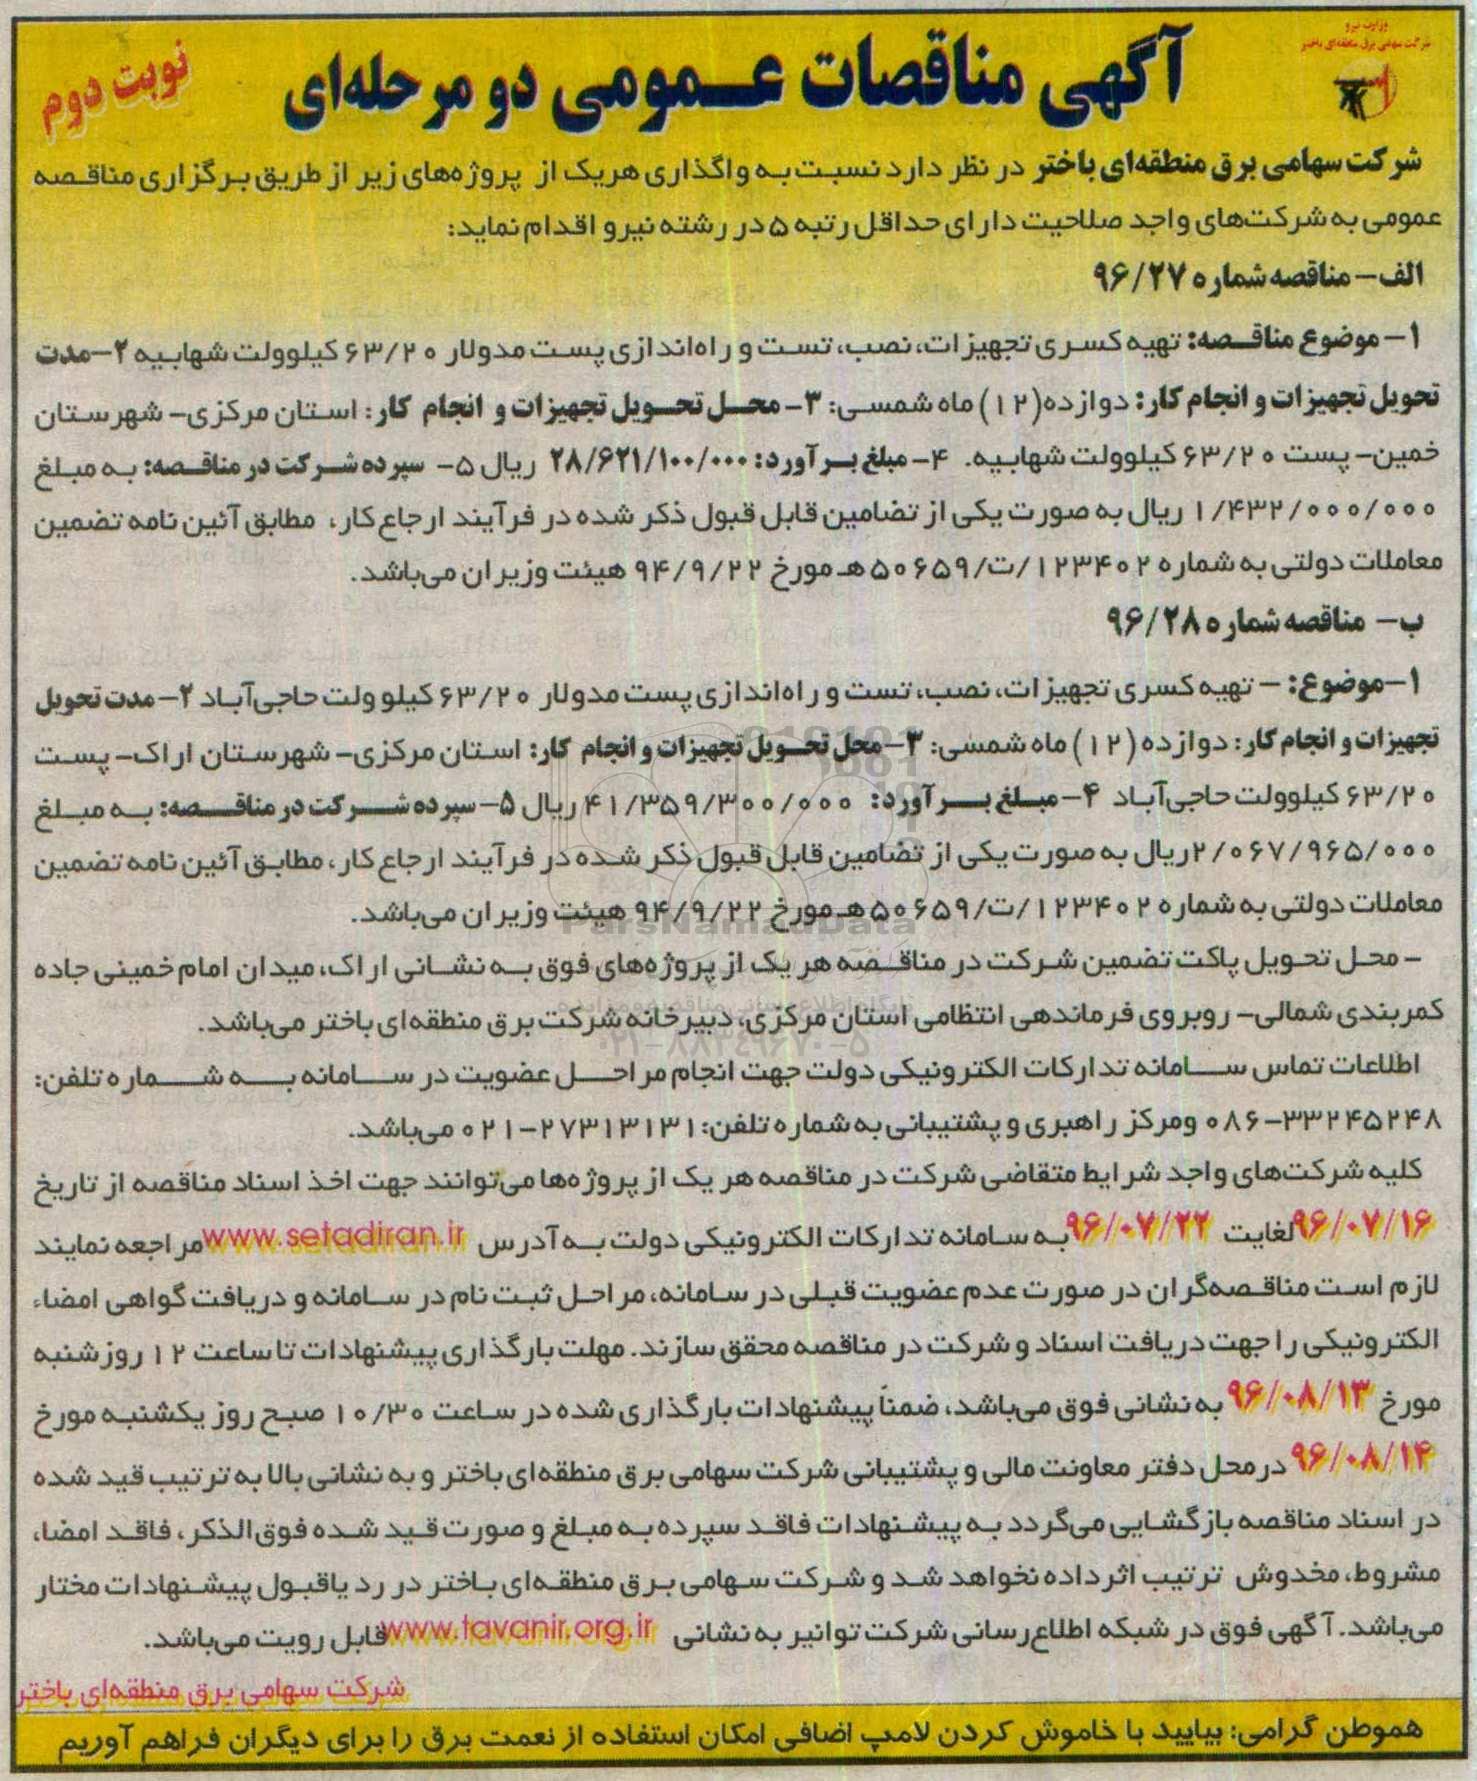 وزارت نیرو
شرکت سهامی برق منطقه‌ای باختر
آگهی مناقصات عمومی دو مرحله‌ای
نوبت دوم
شرکت سهامی برق منطقه‌ای باختر در نظر دارد نسبت به واگذاری هریک از پروژه‌های زیر از طریق برگزاری مناقصه
عمومی به شرکت‌های واجد صلاحیت دارای حداقل رتبه ۵ در رشته نیرو اقدام نماید:
الف- مناقصه شماره ۹۶/۲۷
۱- موضوع مناقصه: تهیه کسری تجهیزات، نصب، تست و راه‌اندازی پست مدولار ۶۳/۲۰ کیلوولت شهابیه ۲-مدت
تحویل تجهیزات و انجام کار: دوازده(۱۲) ماه شمسی: ۳- محل تحویل تجهیزات و انجام کار: استان مرکزی- شهرستان
خمین- پست ۶۳/۲۰ کیلوولت شهابیه. ۴- مبلغ برآورد: ۲۸/۶۲۱/۱۰۰/۰۰۰ ریال ۵- سپرده شرکت در مناقصه: به مبلغ
۱/۴۳۲/۰۰۰/۰۰۰ ریال به صورت یکی از تضامین قابل قبول ذکر شده در فرآیند ارجاع کار، مطابق آئین نامه تضمین
معاملات دولتی به شماره ۱۲۳۴۰۲/ت/۵۰۶۵۹هـ مورخ ۹۴/۹/۲۲ هیئت وزیران می‌باشد.
ب- مناقصه شماره ۹۶/۲۸
۱-موضوع: - تهیه کسری تجهیزات، نصب، تست و راه‌اندازی پست مدولار ۶۳/۲۰ کیلو ولت حاجی‌آباد ۲- مدت تحویل
تجهیزات و انجام کار: دوازده (۱۲) ماه شمسی: ۳-محل تحویل تجهیزات و انجام کار: استان مرکزی- شهرستان اراک- پست
۶۳/۲۰ کیلوولت حاجی‌آباد ۴- مبلغ برآورد: ۴۱/۳۵۹/۳۰۰/۰۰۰ ریال ۵- سپرده شرکت در مناقصه: به مبلغ
۲/۰۶۷/۹۶۵/۰۰۰ریال به صورت یکی از تضامین قابل قبول ذکر شده در فرآیند ارجاع کار، مطابق آئین نامه تضمین
معاملات دولتی به شماره ۱۲۳۴۰۲/ت/۵۰۶۵۹هـ مورخ ۹۴/۹/۲۲ هیئت وزیران می‌باشد.
- محل تحویل پاکت تضمین شرکت در مناقصه هر یک از پروژه‌های فوق به نشانی اراک، میدان امام خمینی جاده
کمربندی شمالی- روبروی فرماندهی انتظامی استان مرکزی، دبیرخانه شرکت برق منطقه‌ای باختر می‌باشد.
اطلاعات تماس سامانه تدارکات الکترونیکی دولت جهت انجام مراحل عضویت در سامانه به شماره تلفن:
۰۸۶-۳۳۲۴۵۲۴۸ ومرکز راهبری و پشتیبانی به شماره تلفن: ۰۲۱-۲۷۳۱۳۱۳۱ می‌باشد.
کلیه شرکت‌های واجد شرایط متقاضی شرکت در مناقصه هر یک از پروژه‌ها می‌توانند جهت اخذ اسناد مناقصه از تاریخ
۹۶/۰۷/۱۶ لغایت ۹۶/۰۷/۲۲ به سامانه تدارکات الکترونیکی دولت به آدرس www.setadiran.ir مراجعه نمایند
لازم است مناقصه‌گران در صورت عدم عضویت قبلی در سامانه، مراحل ثبت نام در سامانه و دریافت گواهی امضاء
الکترونیکی را جهت دریافت اسناد و شرکت در مناقصه محقق سازند. مهلت بارگذاری پیشنهادات تا ساعت ۱۲ روز شنبه
مورخ ۹۶/۰۸/۱۳ به نشانی فوق می‌باشد، ضمناً پیشنهادات بارگذاری شده در ساعت ۱۰/۳۰ صبح روز یکشنبه مورخ
۹۶/۰۸/۱۴ در محل دفتر معاونت مالی و پشتیبانی شرکت سهامی برق منطقه‌ای باختر و به نشانی بالا به ترتیب قید شده
در اسناد مناقصه بازگشایی می‌گردد به پیشنهادات فاقد سپرده به مبلغ و صورت قید شده فوق‌الذکر، فاقد امضا،
مشروط، مخدوش ترتیب اثر داده نخواهد شد و شرکت سهامی برق منطقه‌ای باختر در رد یاقبول پیشنهادات مختار
می‌باشد. آگهی فوق در شبکه اطلاع‌رسانی شرکت توانیر به نشانی www.tavanir.org.ir قابل رویت می‌باشد.
شرکت سهامی برق منطقه‌ای باختر
هموطن گرامی: بیایید با خاموش کردن لامپ اضافی امکان استفاده از نعمت برق را برای دیگران فراهم آوریم
ParsNamadData
۰۲۱-۸۸۳۴۹۶۷۰-۵